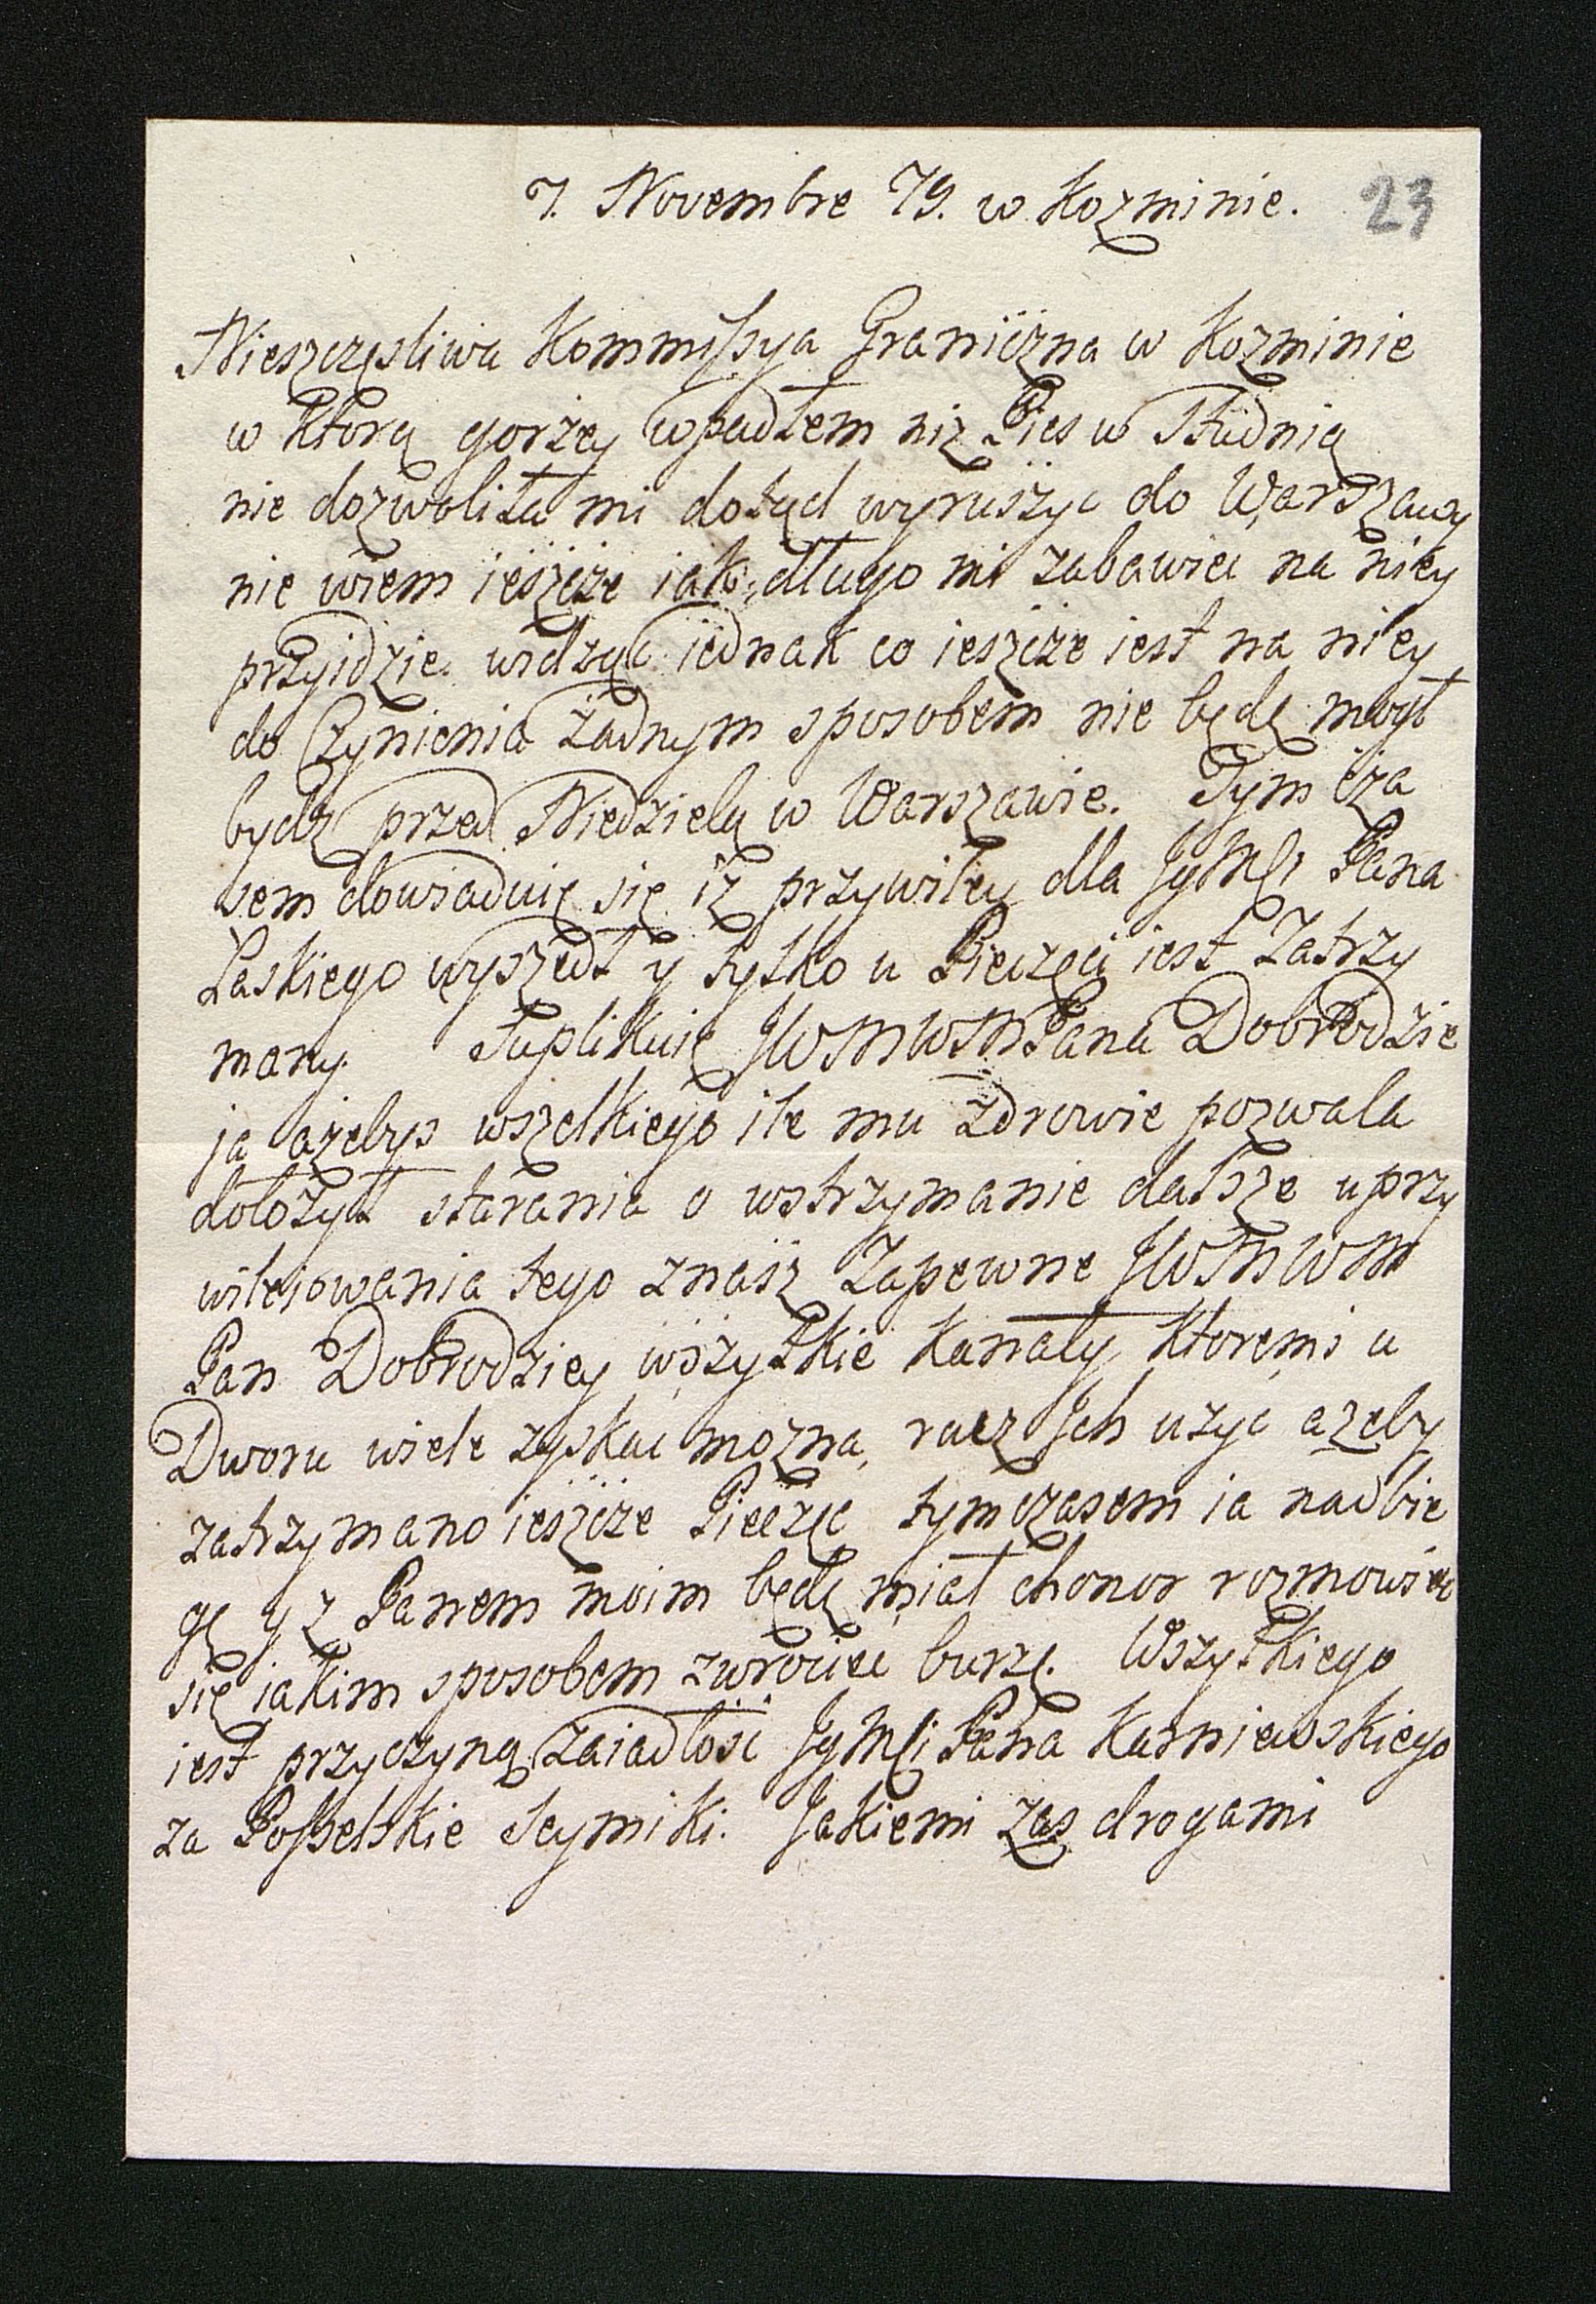 7. Novembre 79. w Kozminie. 23
Nieszczęsliwa Kommissya Graniczna w Kozminie
w Ktorą gorzey wpadłem niz Pies w Studnią
nie dozwoliła mi dotąd wyruszyc do Warszawy
nie wiem ieszcze iak długo mi zabawic na niey
przyidzie. widząc iednak co ieszcze iest na niey
do Czynienia żadnym sposobem nie będę mogł
bydz przed Niedzielą w Warszawie. Tym cza
sem dowiaduię się iz przywiley dla JgMsi Pana
Łaskiego wyszedł y tylko u Pieczęci iest Zatrzy
many. Suplikuię JWMWMPana Dobrodzie
ja azebys wszelkiego ile mu zdrowie pozwala
dołozył starania o wstrzymanie dalsze uprzy
wilejowania tego znasz Zapewne JWMWM
Pan Dobrodziey wszytkie Kanały Ktoremi u
Dworu wiele zyskac mozna, racz Jch uzyc azeby
zatrzymano ieszcze Pieczęc tymczasem ia nadbie
gę y z Panem moim będę miał chonor rozmowic
się iakim sposobem zwrocic burzę. Wszytkiego
iest przyczyną Zaiadłosc JgMsi Pana Karniewskiego
za Posselskie Seymiki. Jakiemi zas drogami